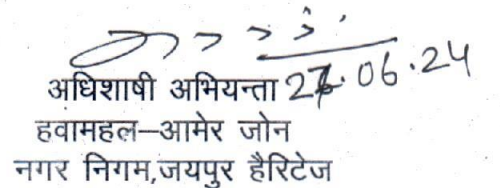 अधिशाषी अभियन्ता
हवामहल–आमेर जोन
नगर निगम,जयपुर हैरिटेज